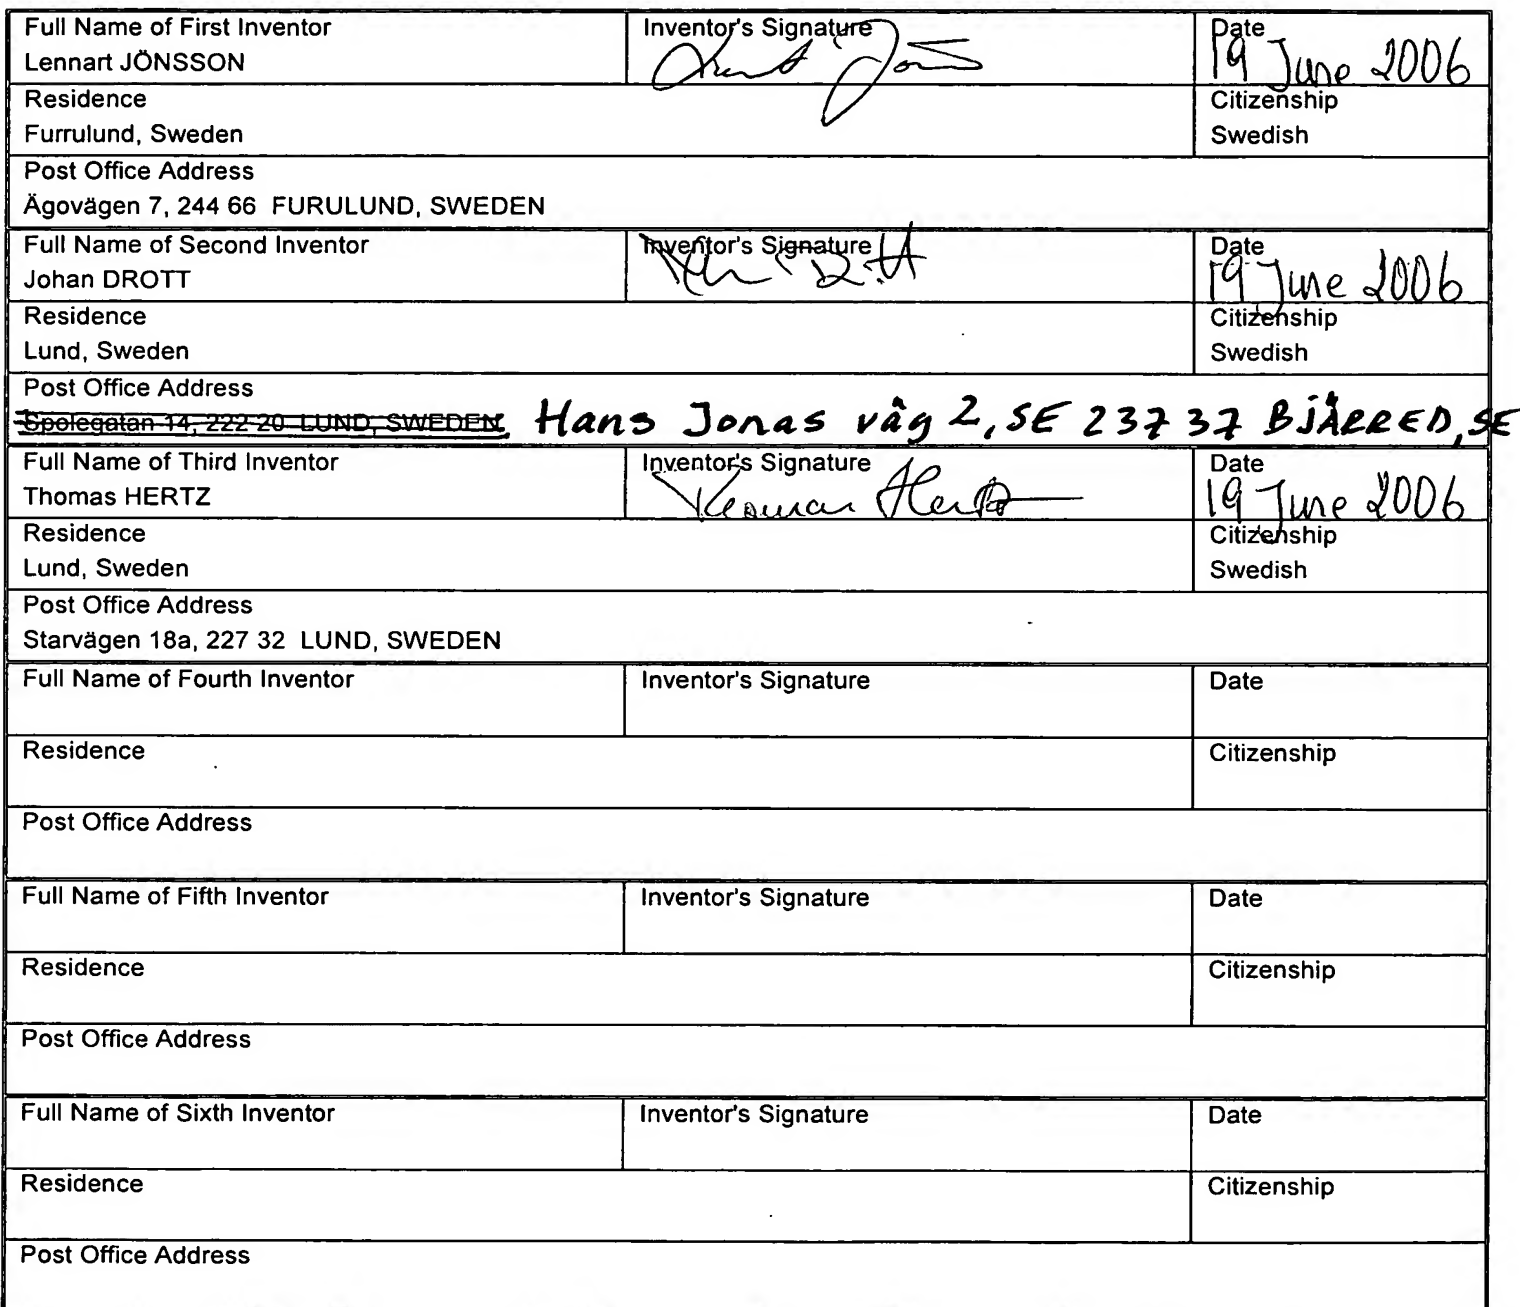 Full Name of First Inventor Inventor's Signature Date
Lennart JÖNSSON 19 June 2006
Residence Citizenship
Furrulund, Sweden Swedish
Post Office Address
Ägovägen 7, 244 66 FURULUND, SWEDEN
Full Name of Second Inventor Inventor's Signature Date
Johan DROTT 19 June 2006
Residence Citizenship
Lund, Sweden Swedish
Post Office Address
Spolegatan 14, 222 20 LUND, SWEDEN Hans Jonas väg 2, SE 237 37 BJÄRRED, SE
Full Name of Third Inventor Inventor's Signature Date
Thomas HERTZ Thomas Hertz 19 June 2006
Residence Citizenship
Lund, Sweden Swedish
Post Office Address
Starvägen 18a, 227 32 LUND, SWEDEN
Full Name of Fourth Inventor Inventor's Signature Date
Residence Citizenship
Post Office Address
Full Name of Fifth Inventor Inventor's Signature Date
Residence Citizenship
Post Office Address
Full Name of Sixth Inventor Inventor's Signature Date
Residence Citizenship
Post Office Address